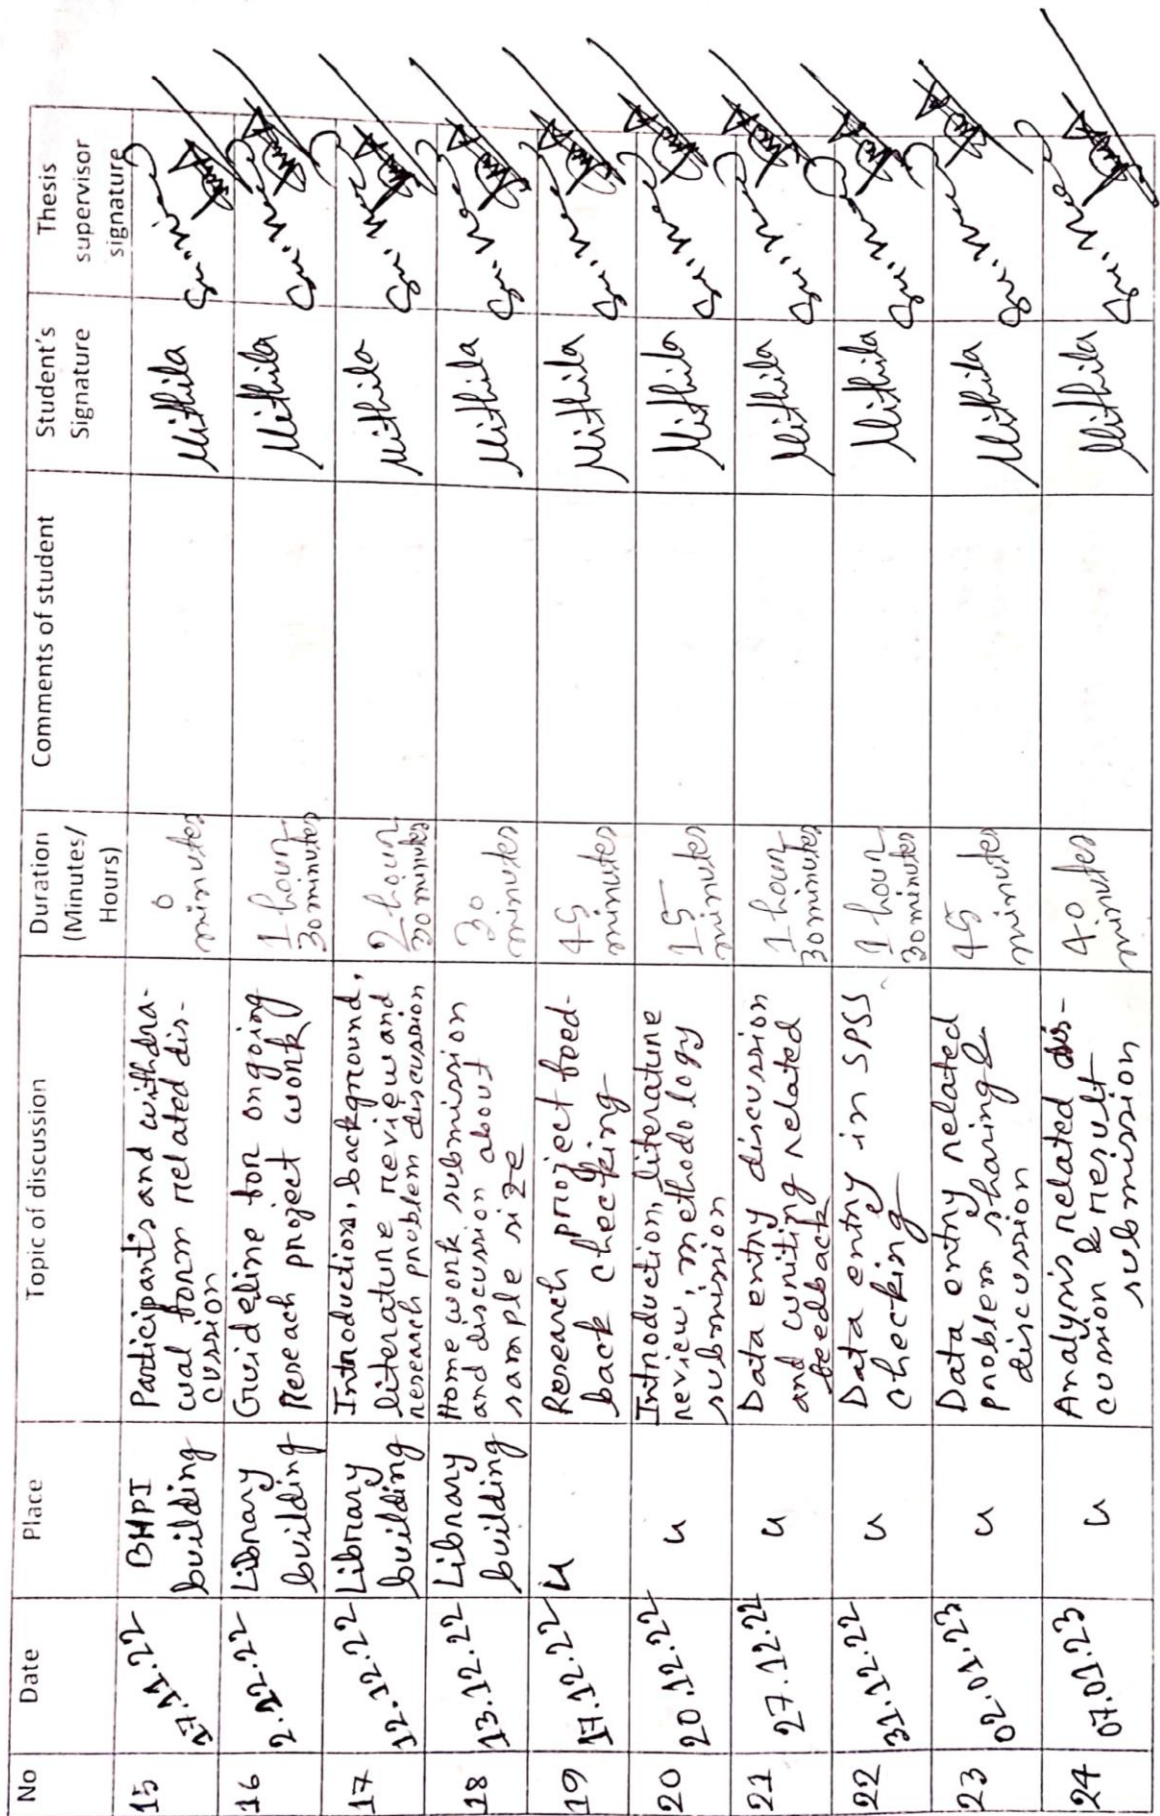 No Date Place Topic of discussion Duration (Minutes/ Hours) Comments of student Student's Signature Thesis supervisor signature
15 17.11.22 BHPI building Participants and withdra-
wal form related dis-
cussion
minutes Mithila
16 2.12.22 Library building Guideline for ongoing
Reseach project work
1 hour 30 minutes Mithila
17 12.12.22 Library building Introduction, background,
literature review and
research problem discussion
2 hour 30 minutes Mithila
18 13.12.22 Library building Home work submission
and discussion about
sample size
30 minutes Mithila
19 17.12.22 u Research project feed-
back checking
45 minutes Mithila
20 20.12.22 u Introduction, literature
review, methodology
submission
15 minutes Mithila
21 27.12.22 u Data entry discussion
and writing related
feedback
1 hour 30 minutes Mithila
22 31.12.22 u Data entry in SPSS
checking
1 hour 30 minutes Mithila
23 02.01.23 u Data entry related
problem sharing &
discussion
45 minutes Mithila
24 07.01.23 u Analysis related dis-
cussion & result
submission
40 minutes Mithila